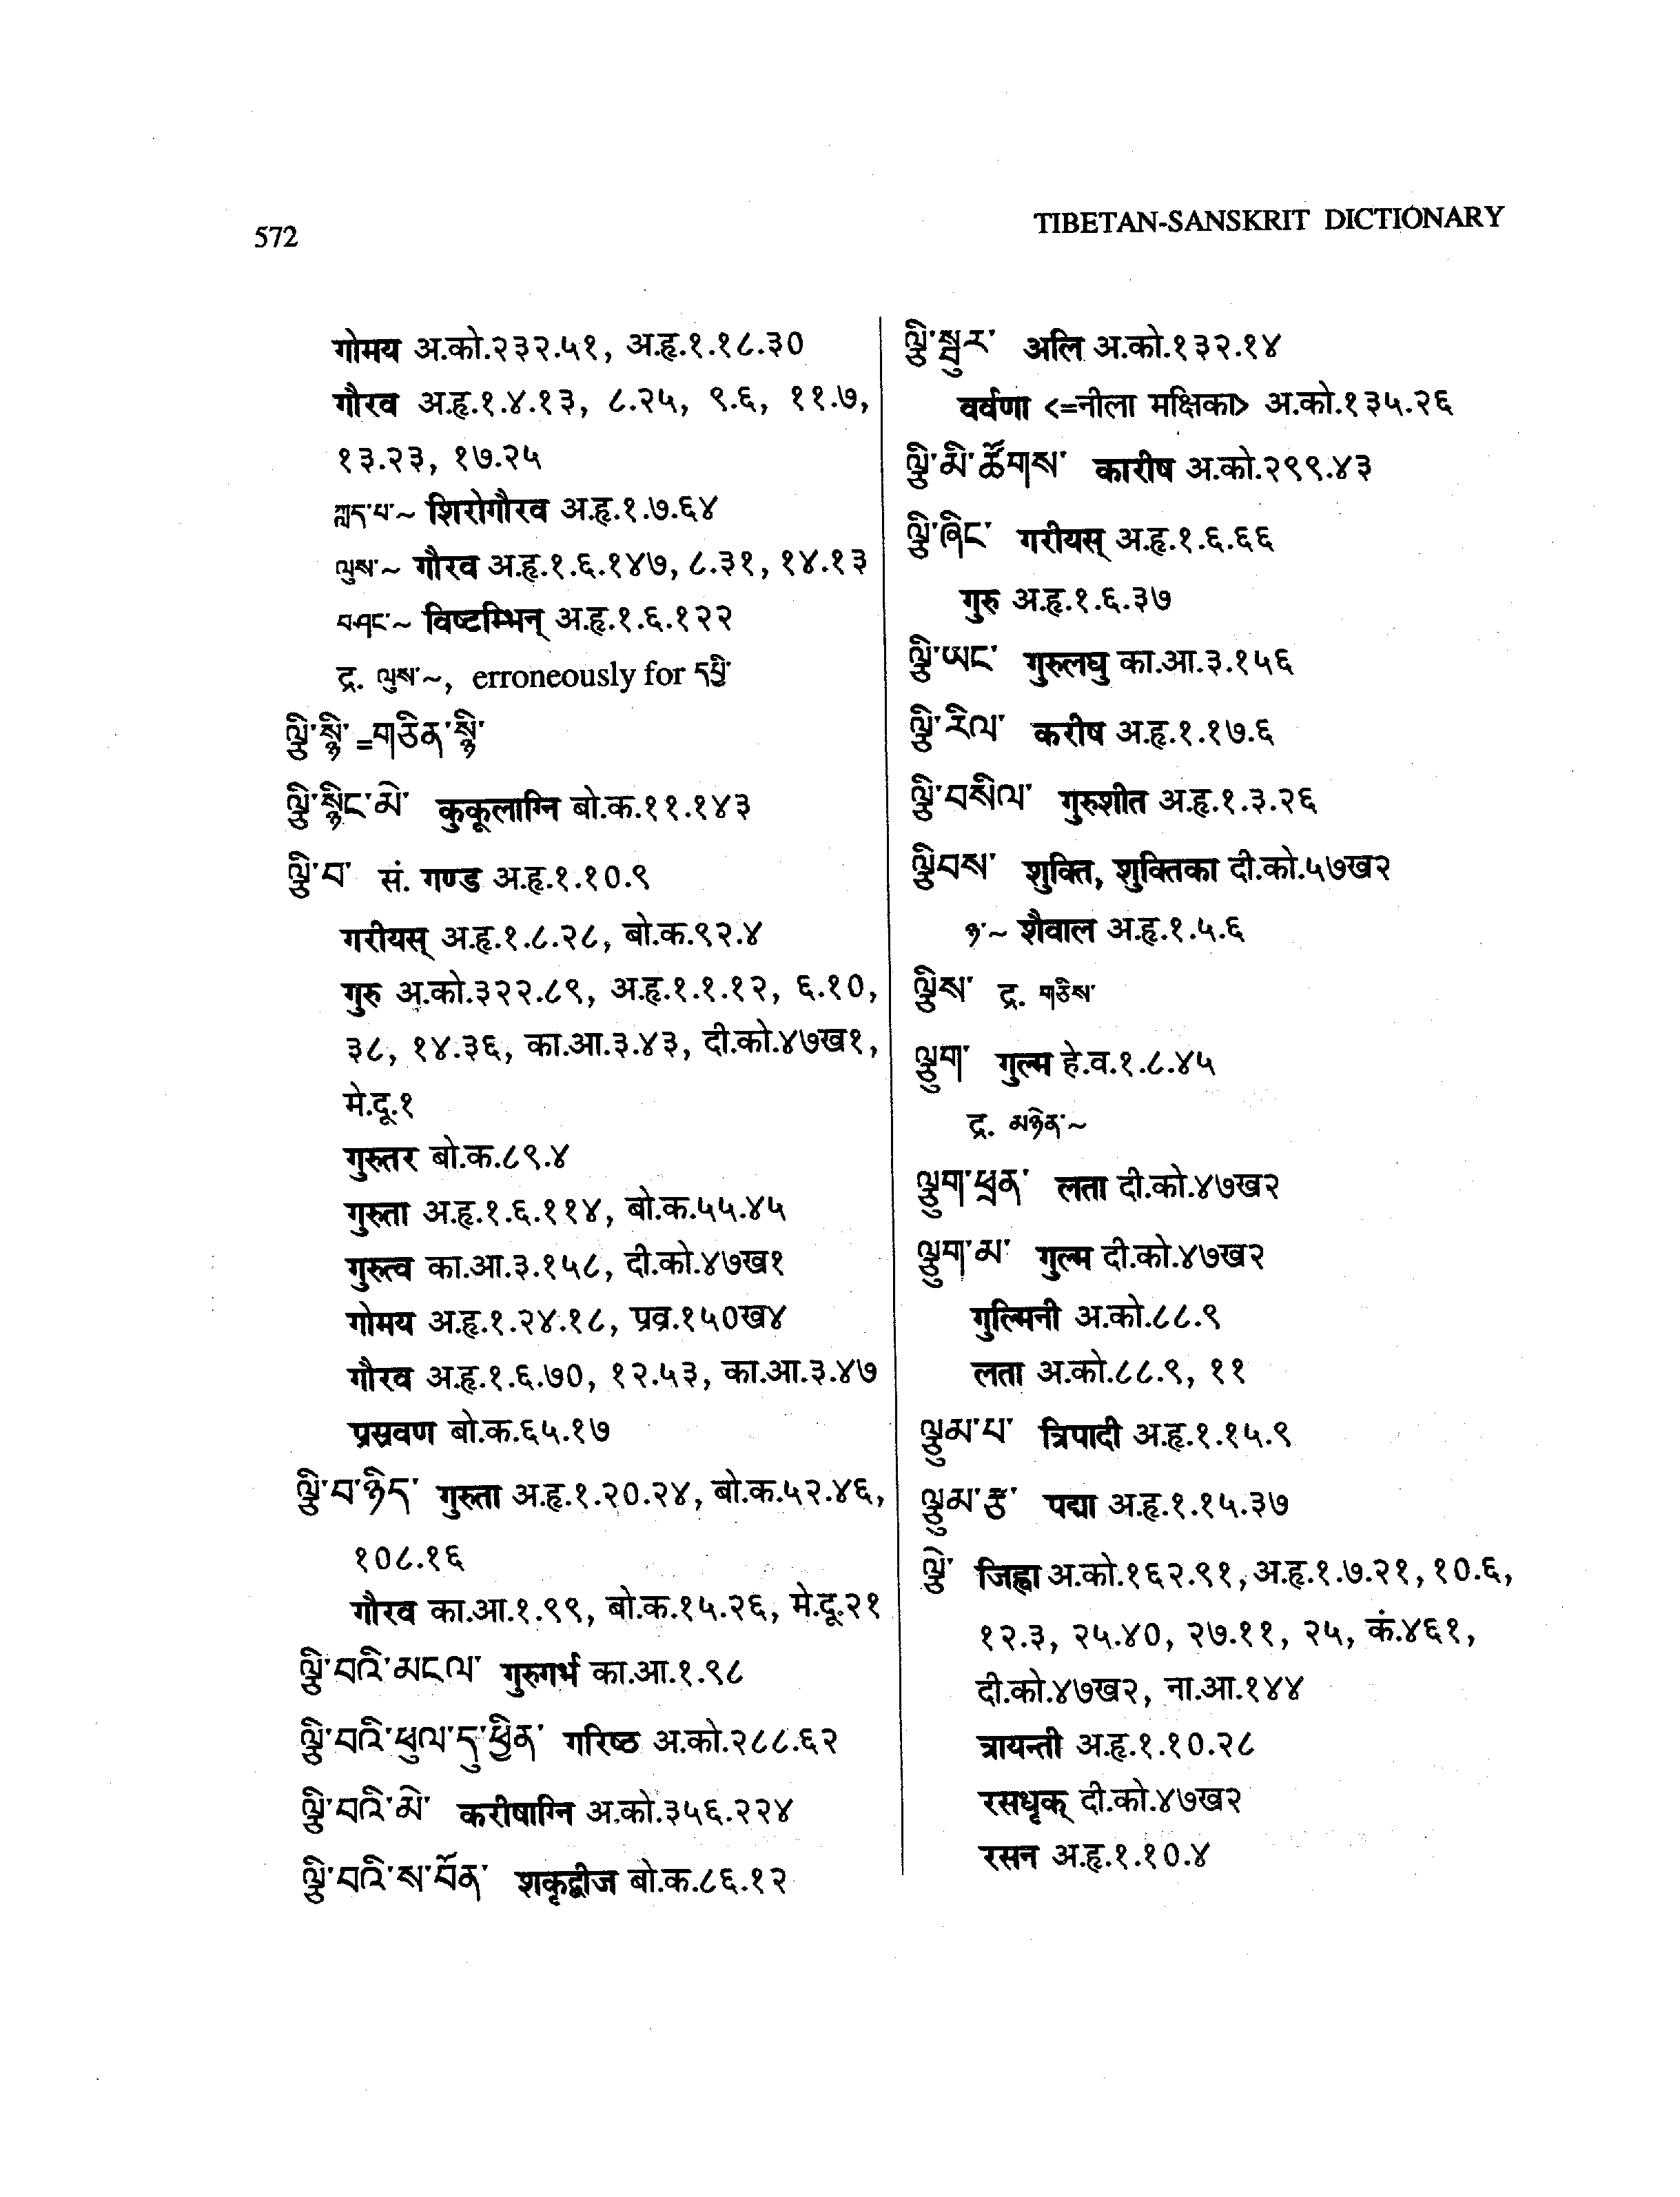 572
TIBETAN-SANSKRIT DICTIONARY
गोमय अ.को.२३२.५१, अ.हृ.१.१८.३०
गौरव अ.हृ.१.४.१३, ८.२५, ९.६, ११.७,
१३.२३, १७.२५
ཀླད་པ་~ शिरोगौरव अ.हृ.१.७.६४
ལུས་~ गौरव अ.हृ.१.६.१४७, ८.३१, १४.१३
བཤང་~ विष्टम्भिन् अ.हृ.१.६.१२२
द्र. ལུས་~, erroneously for དཔྱི་
ལྕི་སྙི་=གཅིན་སྙི་
ལྕི་སྙིང་མེ་ कुकूलाग्नि बो.क.११.१४३
ལྕི་བ་ सं. गण्ड अ.हृ.१.१०.९
गरीयस् अ.हृ.१.८.२८, बो.क.९२.४
गुरु अ.को.३२२.८९, अ.हृ.१.१.१२, ६.१०,
३८, १४.३६, का.आ.३.४३, दी.को.४७ख१,
मे.दू.१
गुरुतर बो.क.८९.४
गुरुता अ.हृ.१.६.११४, बो.क.५५.४५
गुरुत्व का.आ.३.१५८, दी.को.४७ख१
गोमय अ.हृ.१.२४.१८, प्रव्र.१५०ख४
गौरव अ.हृ.१.६.७०, १२.५३, का.आ.३.४७
प्रस्रवण बो.क.६५.१७
ལྕི་བ་ཉིད་ गुरुता अ.हृ.१.२०.२४, बो.क.५२.४६,
१०८.१६
गौरव का.आ.१.९९, बो.क.१५.२६, मे.दू.२१
ལྕི་བའི་མངལ་ गुरुगर्भ का.आ.१.९८
ལྕི་བའི་ཕུལ་དུ་ཕྱིན་ गरिष्ठ अ.को.२८८.६२
ལྕི་བའི་མེ་ करीषाग्नि अ.को.३५६.२२४
ལྕི་བའི་ས་བོན་ शकृद्बीज बो.क.८६.१२
ལྕི་སྦུར་ अलि अ.को.१३२.१४
वर्वणा <=नीला मक्षिका> अ.को.१३५.२६
ལྕི་མི་ཚོགས་ कारीष अ.को.२९९.४३
ལྕི་ཞིང་ गरीयस् अ.हृ.१.६.६६
गुरु अ.हृ.१.६.३७
ལྕི་ཡང་ गुरुलघु का.आ.३.१५६
ལྕི་རིལ་ करीष अ.हृ.१.१७.६
ལྕི་བསིལ་ गुरुशीत अ.हृ.१.३.२६
ལྕིབས་ शुक्ति, शुक्तिका दी.को.५७ख२
ཉ་~ शैवाल अ.हृ.१.५.६
ལྕིས་ द्र. གཅིས་
ལྕུག་ गुल्म हे.व.१.८.४५
द्र. མཉེན་~
ལྕུག་ཕྲན་ लता दी.को.४७ख२
ལྕུག་མ་ गुल्म दी.को.४७ख२
गुल्मिनी अ.को.८८.९
लता अ.को.८८.९, ११
ལྕུམ་པ་ त्रिपादी अ.हृ.१.१५.९
ལྕུམ་རྩ་ पद्मा अ.हृ.१.१५.३७
ལྕེ་ जिह्वा अ.को.१६२.९१, अ.हृ.१.७.२१, १०.६,
१२.३, २५.४०, २७.११, २५, कं.४६१,
दी.को.४७ख२, ना.आ.१४४
त्रायन्ती अ.हृ.१.१०.२८
रसधृक् दी.को.४७ख२
रसन अ.हृ.१.१०.४